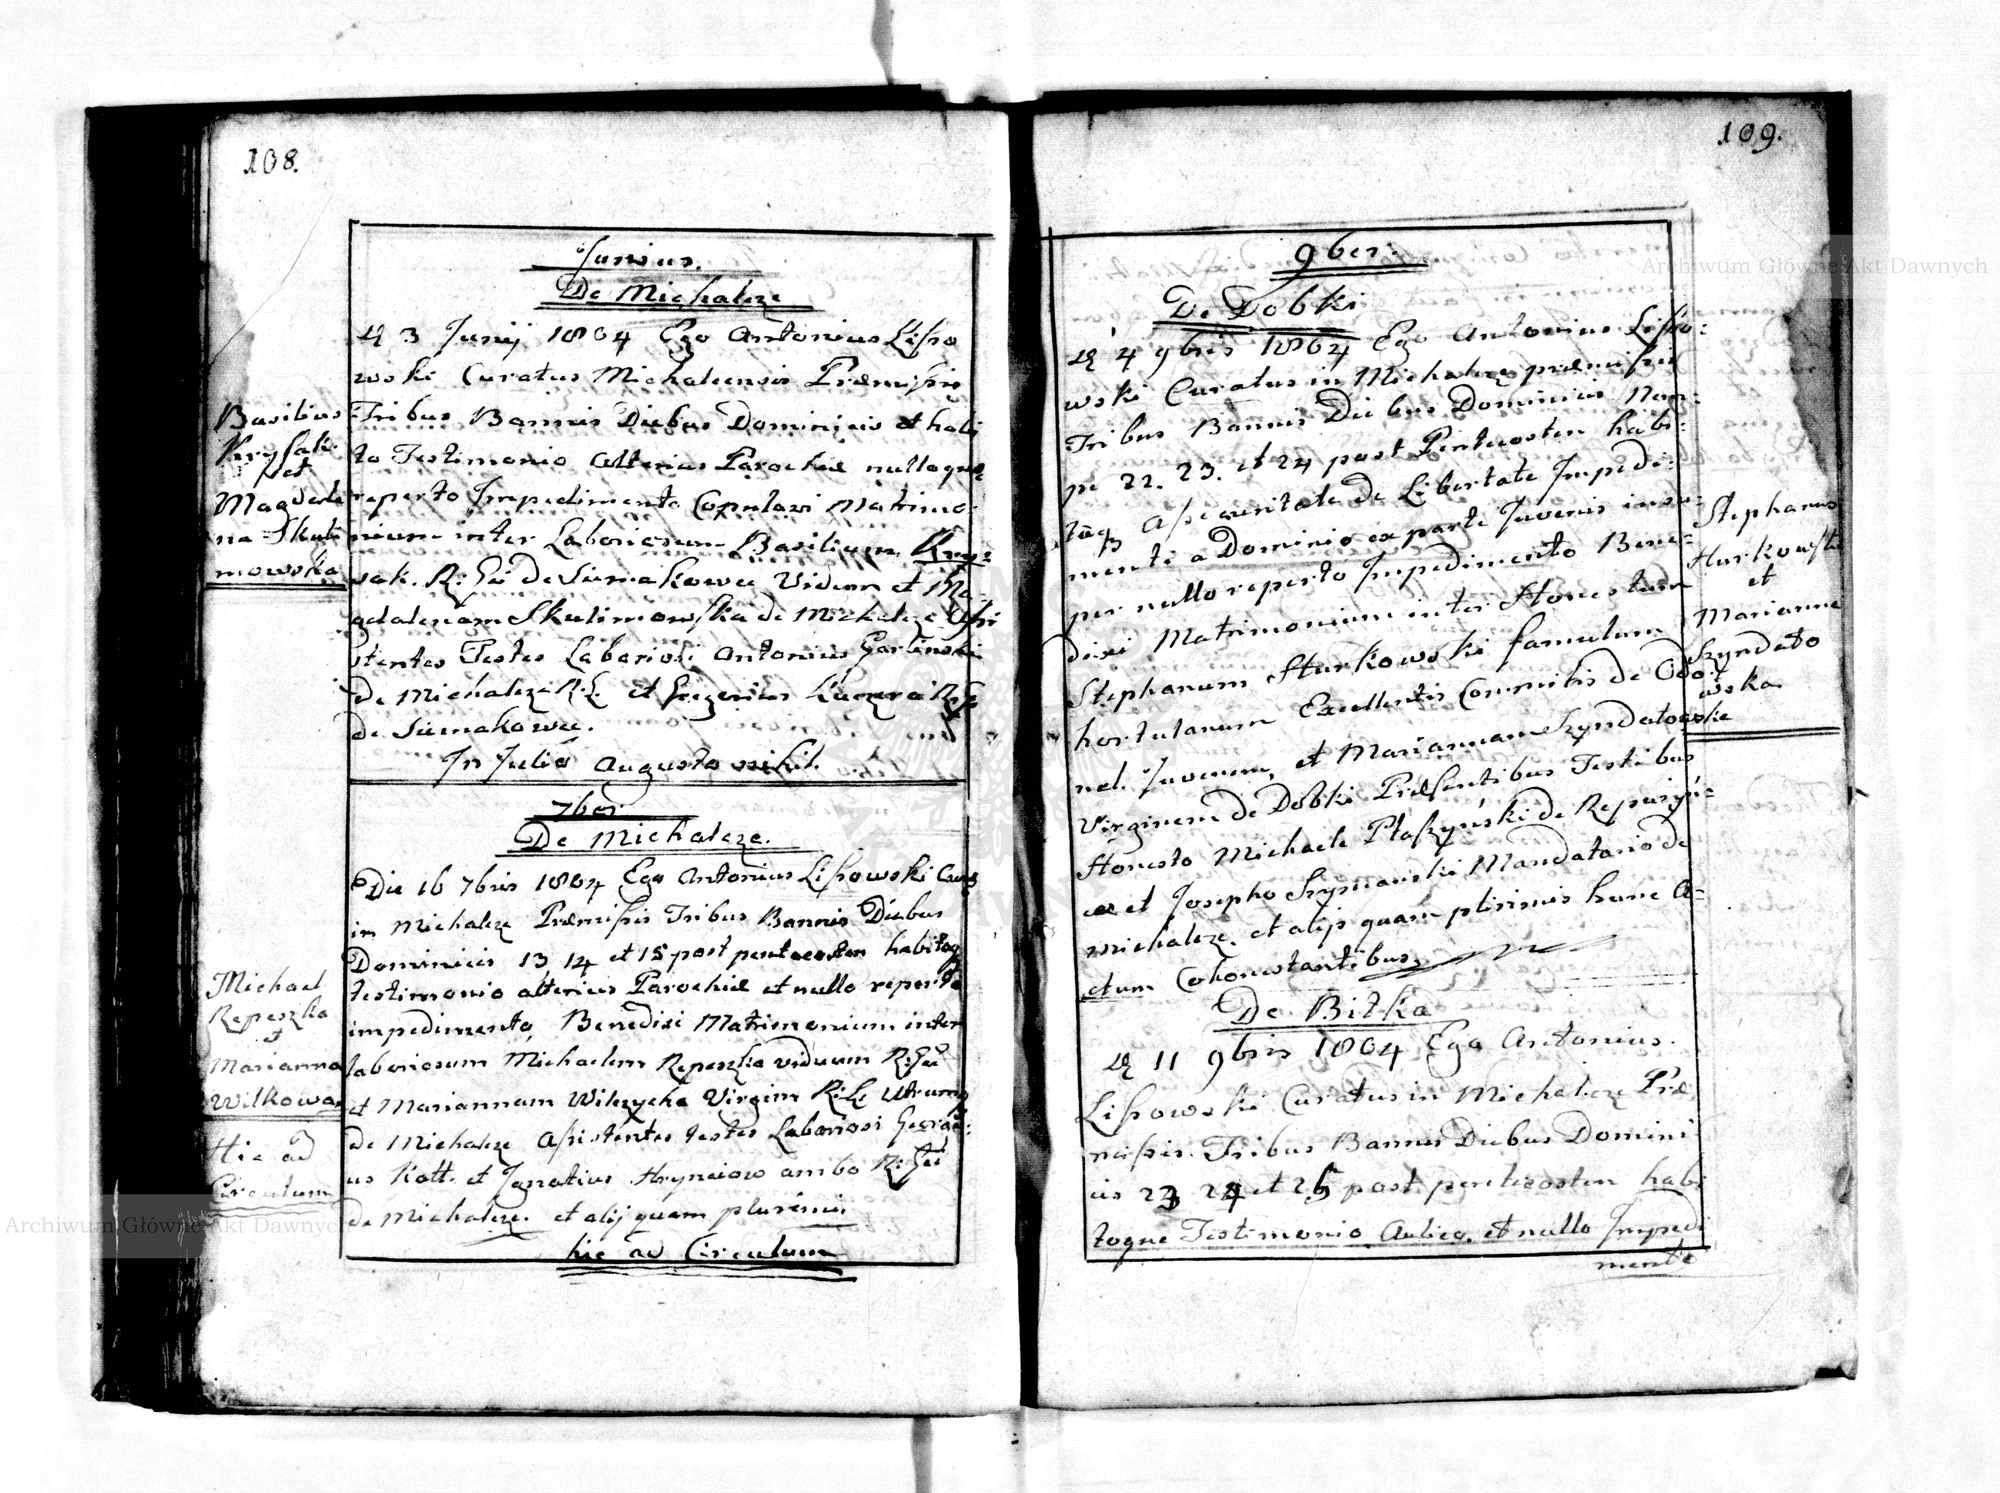 108.
Junius.
De Michalcze
D 3 Junij 1804 Ego Antonius Lisso
wski Curatus Michalcensis Præmissis
Tribus Bannis Diebus Dominicis et habi
to Testimonio Alterius Parochiæ nulloque
reperto Impedimento Copulavi Matrimo
nium inter Laboriosum Basilium Kry=
sak. R: G: de Siemakowce Viduum et Ma
gdalenam Skulimowska de Michalcze Assi
stentes Testes Laboriosi Antonius Garlinski
de Michalcze R. L. et Gregorius R. G.
de Siemakowce.
In Julio Augusto nihil.
Basilius
Krysak
et
Magdale
na Skuli
mowska
7ber
De Michalcze.
Die 16 7bris 1804 Ego Antonius Lissowski Curatus
in Michalcze Præmissis Tribus Bannis Diebus
Dominicis 13 14 et 15 post pentecosten habitoq
testimonio alterius Parochiæ et nullo reperto
impedimento Benedixi Matrimonium inter
laboriosum Michaelem Repeszka viduum R: G:
et Mariannam Wilczycka Virgin R: L: Utrumq
de Michalcze Assistentes testes Laboriosi Georgi=
us Kott. et Ignatius Hryneiow ambo R: G:
de Michalcze. et alij quam plurimi
hic ad Circulum
Michael
Repeszka
et
Marianna
Wilkowa.
Hic ad
Circulum
109.
9ber.
De Dobki
D 4 9bris 1804 Ego Antonius Lisso=
wski Curatus in Michalcze præmissis
Tribus Bannis Diebus Dominicis Nem=
pe 22. 23. et 24 post Pentecosten habi=
toq Assecuritate de Libertate Impedi=
menti a Dominio ex parte Juvenis insu=
per nullo reperto Impedimento Bene=
dixi Matrimonium inter Honestum
Stephanum Hurkowski famulum
hortulanum Excellentis Commitis de
nel. Juvenem, et Mariannam Szyndatowske
Virginem de Dobki Præsentibus Testibus
Honesto Michaele Ptaszyński de Repuzyń=
ce et Josepho Szymanski Mandatario de
Michalcze. et alijs quam plurimis hunc A=
ctum Cohonestantibus.
Stephanus
Hurkowski
et
Marianna
Szyndato
wska
De Bilka
D 11 9bris 1804 Ego Antonius.
Lissowski Curatus in Michalcze Præ
missis Tribus Bannis Diebus Domini
cis 23 24 et 25 post pentecosten habi
toque Testimonio et nullo Impedi
mento
Archiwum Główne Akt Dawnych
Archiwum Główne Akt Dawnych